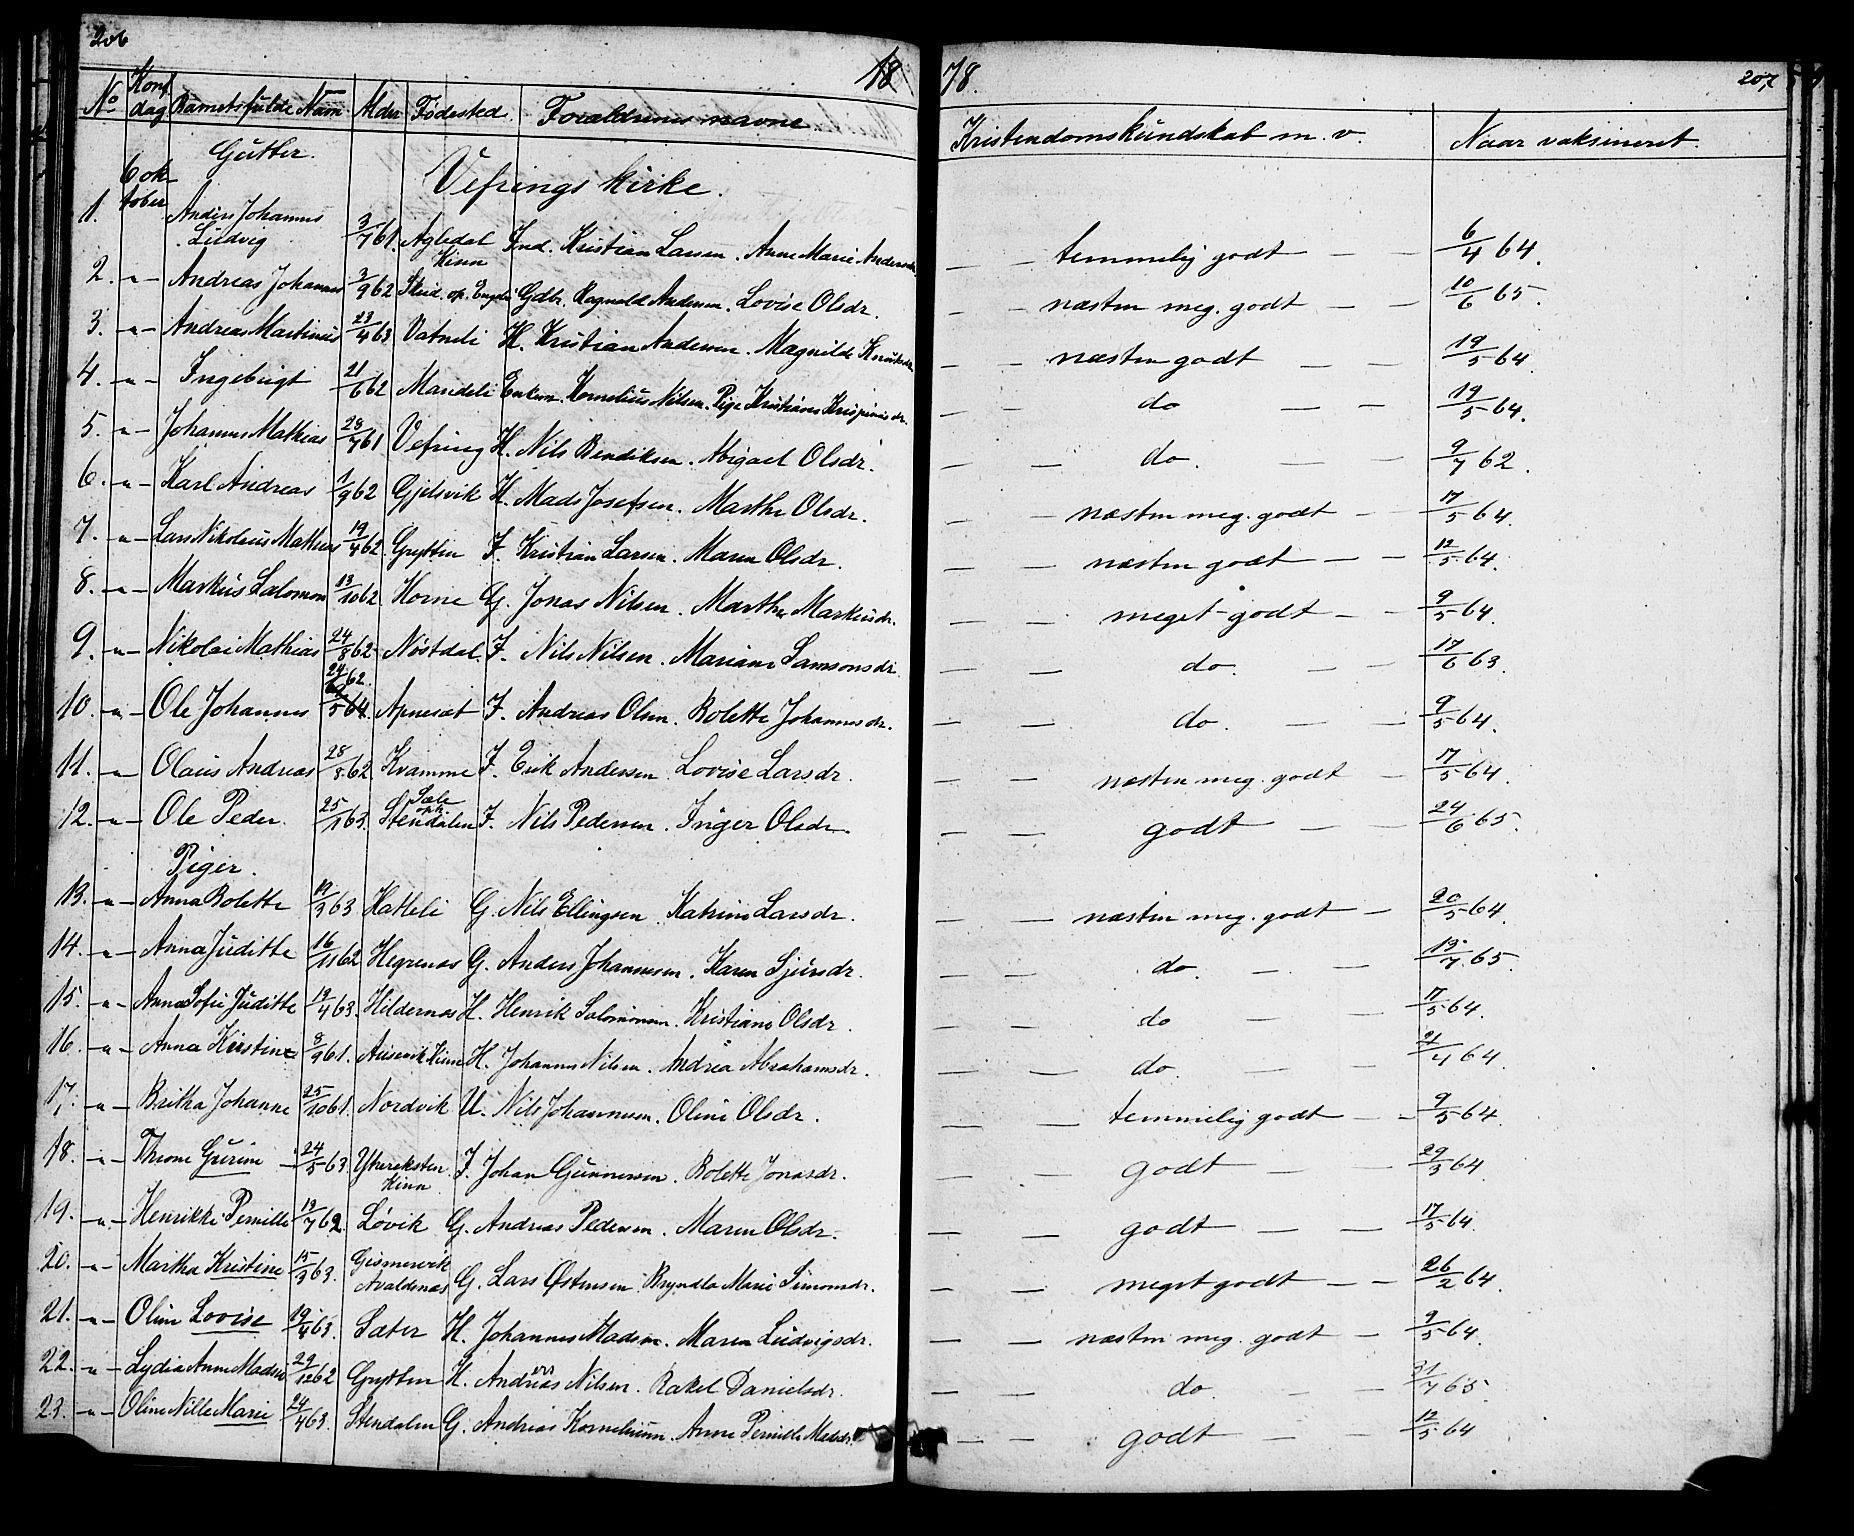 206
18
78.
207
No Konf dag Barnets fulde Navn Alder Fødested Forældrenes navne Kristendomskundskab m. v. Naar vaksineret
6 oktober Gutter. Vefrings kirke.
1. Anders Johannes Ludvig 3/7 61. Agledal Kinn Ind. Kristian Larsen. Anne Marie Andersdr — — temmelig godt — — 6/4 64.
2. -"- Andreas Johannes 3/9 62 Skid. op. Gdbr. Ragnald Andersen. Lovise Olsdr. — — næsten meg. godt — — 10/6 65.
3. -"- Andreas Martinus 23/4 63 Vatneli H. Kristian Andersen. Magnilde Knutsdr — — næsten godt — — 19/5 64.
4. -"- Ingebrigt 21/6 62 Mardeli Enkem. Kornelius Nilsen. Pige Kristiane Krispinusdr. — — do — — 19/5 64.
5. -"- Johannes Mathias 28/7 61 Vefring H. Nils Bendiksen. Abigael Olsdr. — — do. — — 9/7 62.
6. -"- Karl Andreas 1/9 62 Gjelsvik H. Mads Josefsen. Marthe Olsdr. — — næsten meg. godt — — 17/5 64.
7. -"- Lars Nikolaus Mathias 19/4 62 Grytten F. Kristian Larsen. Maren Olsdr. — — næsten godt — — 12/5 64.
8. -"- Markus Salomon 13/10 62 Horne G. Jonas Nilsen. Marthe Markusdr. — — meget godt — — 9/5 64.
9. -"- Nikolai Mathias 24/8 62 Nøstdal F. Nils Nilsen. Mariane Samsonsdr. — — do. — — 17/6 63.
24/6 62.
10. -"- Ole Johannes 5 64. Apneset F. Andreas Olsen. Bolette Johannesdr. — — do. — — 9/5 64.
11. -"- Olaus Andreas 28/8 62 Kvamme F. Erik Andersen. Lovise Larsdr. næsten meg. godt — 17/5 64.
12. -"- Ole Peder. 25/1 63. Sæle oph. Stendalen F. Nils Pedersen. Inger Olsdr. — — godt — — 24/6 65.
Piger.
13. -"- Anna Bolette 19/3 63 Hatleli G. Nils Ellingsen. Katrine Larsdr. — — næsten meg. godt — 20/5 64.
14. -"- Anna Juditte 16/11 62 Hegrenæs G. Anders Johannesen. Karen Sjursdr. — — do. — — 13/7 65.
15. -"- Anna Sofie Juditte 13/4 63. Hildernæs H. Henrik Salomonsen. Kristiane Olsdr. — — do — — 17/5 64.
16. -"- Anna Kirstine 8/9 61. Ausevik Kinn H. Johannes Nilsen. Andrea Abrahamsdr. — — do. — — 21/4 64.
17. -"- Britha Johanne 25/10 61. Nordvik U. Nils Johannesen. Oline Olsdr. — — temmelig godt — — 9/5 64.
18. -"- Thrine Gurine 24/5 63. Kinn F. Johan Gunnersen. Bolette Jonasdr. — — godt — — 29/3 64
19. -"- Henrikke Pernille 19/7 62. Løvik G. Andreas Pedersen. Maren Olsdr. — — godt — — 17/5 64.
20. -"- Martha Kristine 15/3 63. Gismervik Avaldsnæs G. Lars Østensen. Bryndla Marie Simonsdr. — — meget godt — — 26/2 64.
21. -"- Oline Lovise 19/4 63. Sæter H. Johannes Madsen. Maren Ludvigsdr. — — næsten meg. godt — 9/5 64.
22. -"- Lydia Anne Madsine 29/12 62 Grytten H. Andreas Nilsen. Rakel Danielsdr. — — do. — — 31/7 65
23. -"- Oline Nille Marie 24/4 63. Stendalen G. Andreas Korneliusen. Anne Pernille Madsdr. — — godt — — 12/5 64